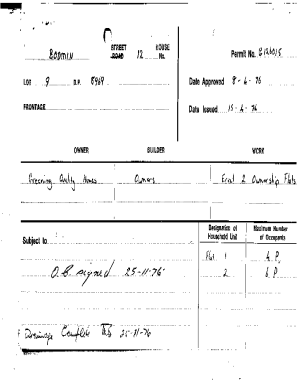 BODMIN STREET ROAD 12 HOUSE No. Permit No.
LOT 9 D.P. 8969 Date Approved 8-4-76
FRONTAGE Date Issued 15-4-76
OWNER BUILDER WORK
Greening Quality Homes Owners Erect 2 Ownership Flats
Subject to Designation of Household Unit Maximum Number of Occupants
Flat 1 6 P.
O.B. signed 25-11-76 2 6 P.
Drainage Complete 25-11-76